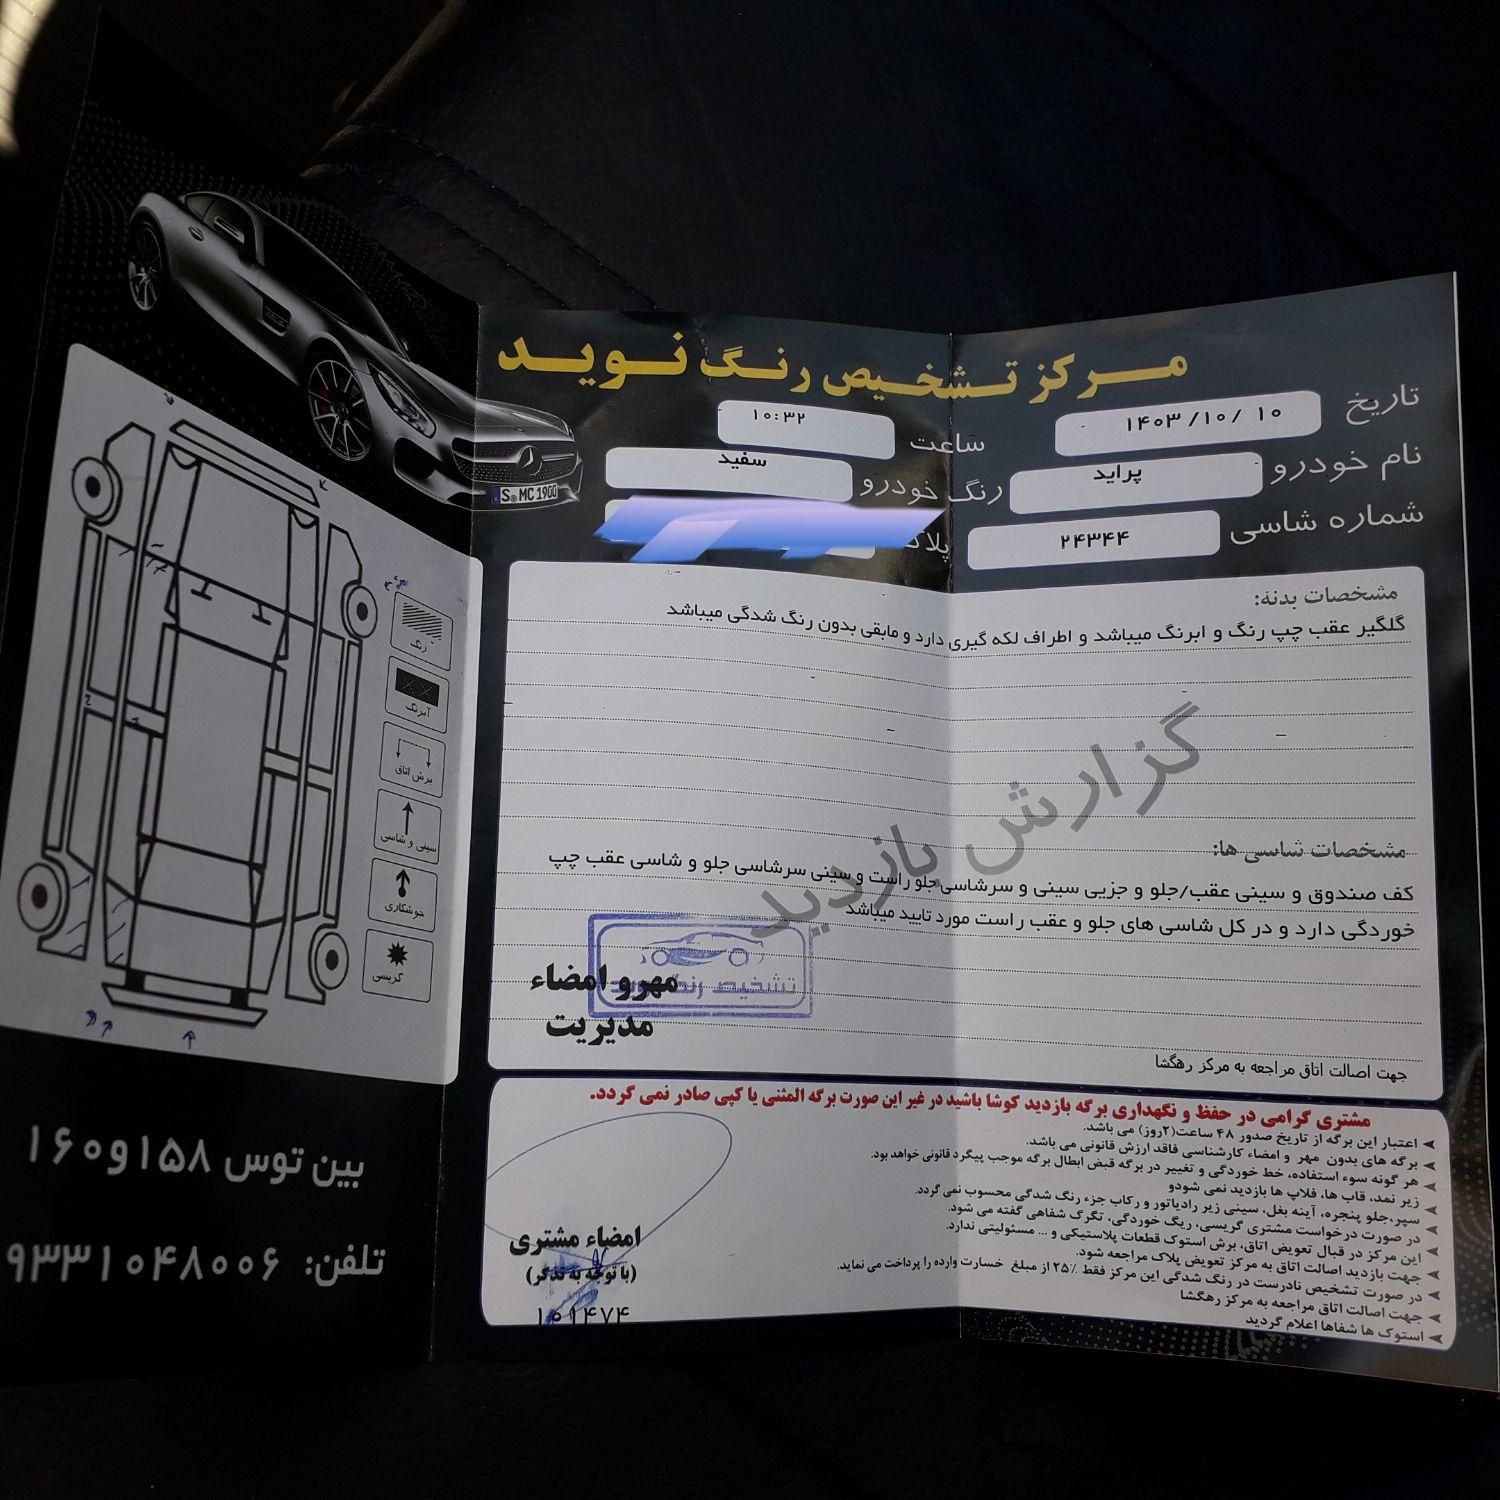 مرکز تشخیص رنگ نوید
تاریخ ۱۴۰۳/۱۰/۱۰
ساعت ۱۰:۳۲
نام خودرو پراید
رنگ خودرو سفید
شماره شاسی ۲۴۳۴۴
پلاک
مشخصات بدنه:
گلگیر عقب چپ رنگ و ابرنگ میباشد و اطراف لکه گیری دارد و مابقی بدون رنگ شدگی میباشد
گزارش بازدید
مشخصات شاسی ها:
کف صندوق و سینی عقب/جلو و جزیی سینی و سرشاسی جلو راست و سینی سرشاسی جلو و شاسی عقب چپ
خوردگی دارد و در کل شاسی های جلو و عقب راست مورد تایید میباشد
تشخیص رنگ نوید
مهر و امضاء
مدیریت
جهت اصالت اتاق مراجعه به مرکز رهگشا
مشتری گرامی در حفظ و نگهداری برگه بازدید کوشا باشید در غیر این صورت برگه المثنی یا کپی صادر نمی گردد.
اعتبار این برگه از تاریخ صدور ۴۸ ساعت(۲روز) می باشد.
برگه های بدون مهر و امضاء کارشناسی فاقد ارزش قانونی می باشد.
هر گونه سوء استفاده، خط خوردگی و تغییر در برگه قبض ابطال برگه موجب پیگرد قانونی خواهد بود.
زیر نمد، قاب ها، فلاپ ها بازدید نمی شودو
سپر،جلو پنجره، آینه بغل، سینی زیر رادیاتور و رکاب جزء رنگ شدگی محسوب نمی گردد.
در صورت درخواست مشتری گریسی، ریگ خوردگی، تگرگ شفاهی گفته می شود.
این مرکز در قبال تعویض اتاق، برش استوک قطعات پلاستیکی و ... مسئولیتی ندارد.
جهت بازدید اصالت اتاق به مرکز تعویض پلاک مراجعه شود.
در صورت تشخیص نادرست در رنگ شدگی این مرکز فقط ۲۵٪ از مبلغ خسارت وارده را پرداخت می نماید.
جهت اصالت اتاق مراجعه به مرکز رهگشا
استوک ها شفاها اعلام گردید
امضاء مشتری
(با توجه به تذکر)
۱۰۱۴۷۴
S MC 1900
رنگ
آبرنگ
برش اتاق
سینی و شاسی
جوشکاری
گریسی
بین توس ۱۵۸ و ۱۶۰
تلفن: ۹۳۳۱۰۴۸۰۰۶